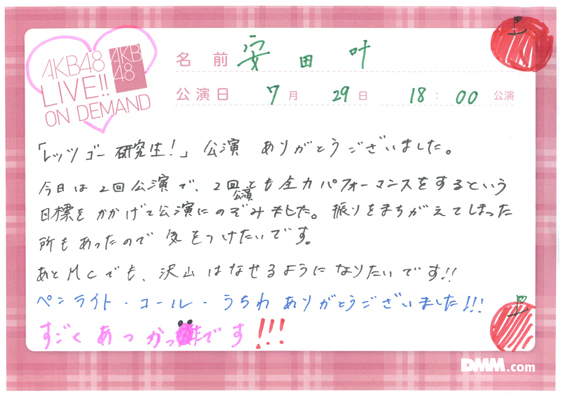 AKB48
LIVE!!
ON DEMAND
AKB
48
名前 安田叶
公演日 7月 29日 18:00 公演
「レッツゴー研究生!」公演 ありがとうございました。
今日は2回公演で、2回公演とも全力パフォーマンスをするという
目標をかかげて公演にのぞみました。振りをまちがえてしまった
所もあったので気をつけたいです。
あとMCでも、沢山はなせるようになりたいです!!
ペンライト・コール・うちわありがとうございました!!!
すごくあつかったです!!!
DMM.com